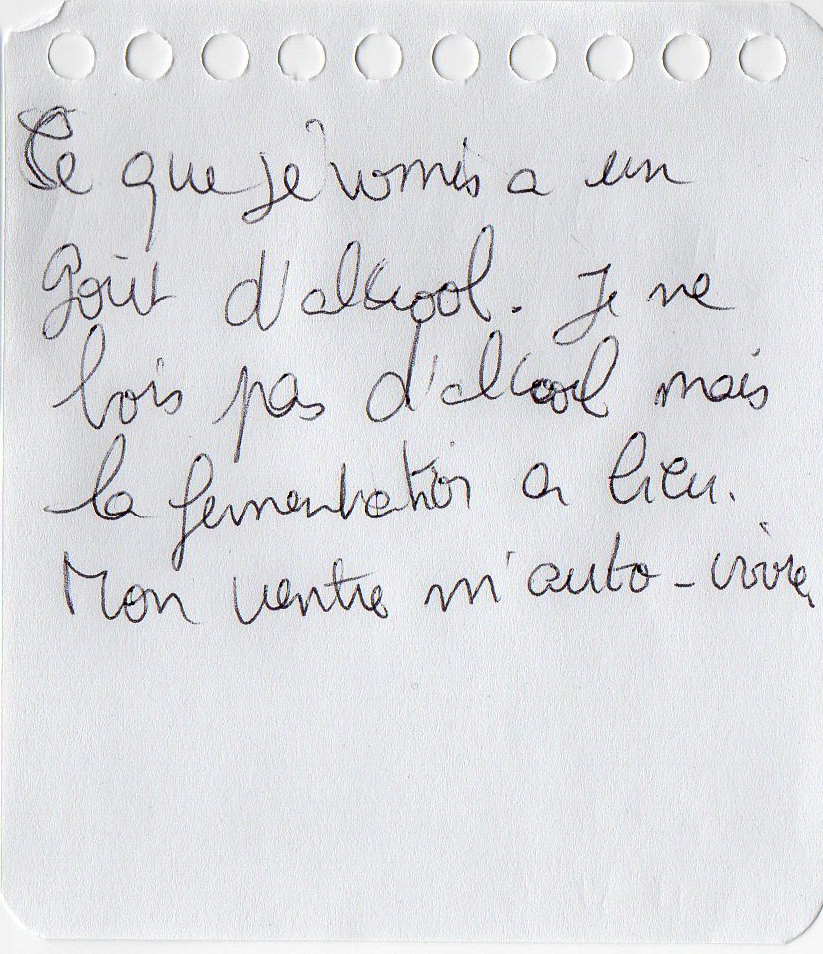 Ce que je vomis a un
goût d'alcool. Je ne
bois pas d'alcool mais
la fermentation a lieu.
Mon ventre m'auto-